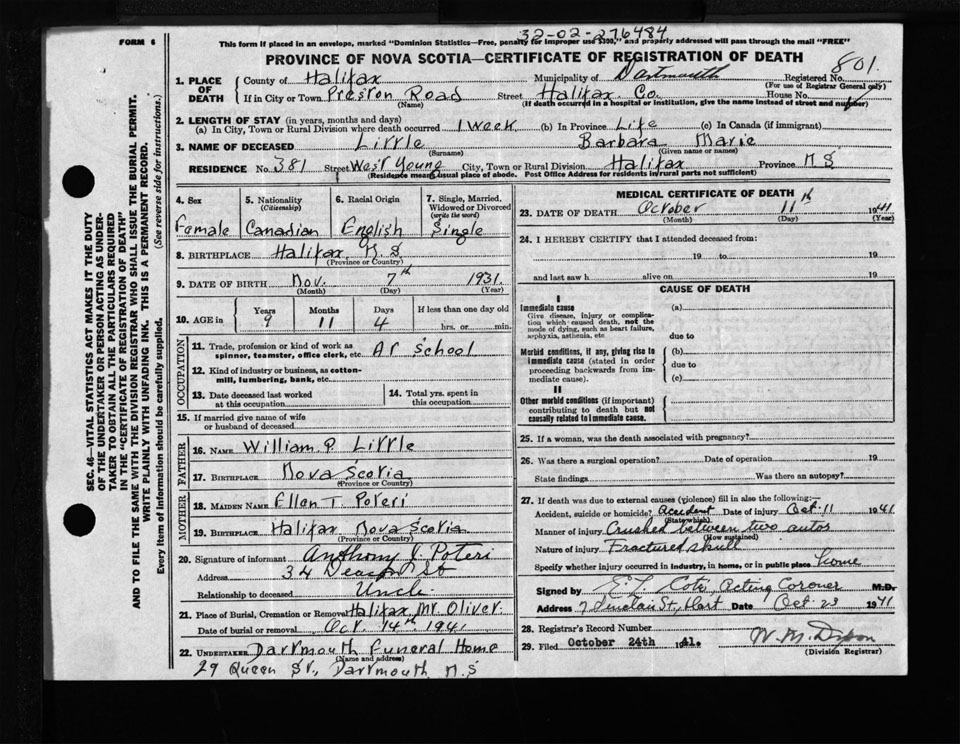 32-02-276484
FORM 6
This form if placed in an envelope, marked "Dominion Statistics—Free, penalty for improper use $300," and properly addressed will pass through the mail "FREE"
PROVINCE OF NOVA SCOTIA—CERTIFICATE OF REGISTRATION OF DEATH
1. PLACE OF DEATH County of Halifax Municipality of Dartmouth Registered No. 801.
(For use of Registrar General only)
If in City or Town Preston Road Street Halifax Co. House No.
(Name) (If death occurred in a hospital or institution, give the name instead of street and number)
2. LENGTH OF STAY (in years, months and days)
(a) In City, Town or Rural Division where death occurred 1 week (b) In Province Life (c) In Canada (if immigrant)
3. NAME OF DECEASED Little Barbara Marie
(Surname) (Given name or names)
RESIDENCE No. 381 Street West Young City, Town or Rural Division Halifax Province N S
(Residence means usual place of abode. Post Office Address for residents in rural parts not sufficient)
4. Sex Female
5. Nationality (Citizenship) Canadian
6. Racial Origin English
7. Single, Married, Widowed or Divorced (write the word) Single
8. BIRTHPLACE Halifax N.S
(Province or Country)
9. DATE OF BIRTH Nov. 7th 1931.
(Month) (Day) (Year)
10. AGE in Years 9 Months 11 Days 4 If less than one day old
hrs. or min.
OCCUPATION
11. Trade, profession or kind of work as spinner, teamster, office clerk, etc. At school
12. Kind of industry or business, as cotton-mill, lumbering, bank, etc.
13. Date deceased last worked at this occupation
14. Total yrs. spent in this occupation
15. If married give name of wife or husband of deceased
FATHER
16. NAME William. P. Little
17. BIRTHPLACE Nova Scotia
(Province or Country)
MOTHER
18. MAIDEN NAME Ellen T. Poteri
19. BIRTHPLACE Halifax Nova Scotia
(Province or Country)
20. Signature of informant Anthony J. Poteri
Address 34
Relationship to deceased Uncle
21. Place of Burial, Cremation or Removal Halifax, Mt. Oliver.
Date of burial or removal Oct. 14th 1941
22. UNDERTAKER Dartmouth Funeral Home
(Name and address)
29 Queen St., Dartmouth N.S
MEDICAL CERTIFICATE OF DEATH
23. DATE OF DEATH October 11th 1941
(Month) (Day) (Year)
24. I HEREBY CERTIFY that I attended deceased from:
19 to 19
and last saw h alive on 19
CAUSE OF DEATH
I
Immediate cause (a)
Give disease, injury or complication which caused death, not mode of dying, such as heart failure, asphyxia, asthenia, etc
due to
Morbid conditions, if any, giving rise to immediate cause (stated in order proceeding backwards from immediate cause).
(b)
due to
(c)
II
Other morbid conditions (if important) contributing to death but not causally related to immediate cause.
25. If a woman, was the death associated with pregnancy?
26. Was there a surgical operation? Date of operation 19
State findings Was there an autopsy?
27. If death was due to external causes (violence) fill in also the following:—
Accident, suicide or homicide? Accident Date of injury Oct. 11 1941
(State which)
Manner of injury Crushed between two autos
(How sustained)
Nature of injury Fractured skull
Specify whether injury occurred in industry, in home, or in public place home
Signed by E L Coté, Acting Coroner M.D.
Address 7 Sinclair St, Dart Date Oct 23 1941
28. Registrar's Record Number
29. Filed October 24th 1941. W. M. Dixon
(Division Registrar)
SEC. 46—VITAL STATISTICS ACT MAKES IT THE DUTY
OF THE UNDERTAKER OR PERSON ACTING AS UNDER-
TAKER TO OBTAIN ALL THE PARTICULARS REQUIRED
IN THE "CERTIFICATE OF REGISTRATION OF DEATH"
AND TO FILE THE SAME WITH THE DIVISION REGISTRAR WHO SHALL ISSUE THE BURIAL PERMIT.
WRITE PLAINLY WITH UNFADING INK. THIS IS A PERMANENT RECORD.
Every item of information should be carefully supplied. (See reverse side for instructions.)